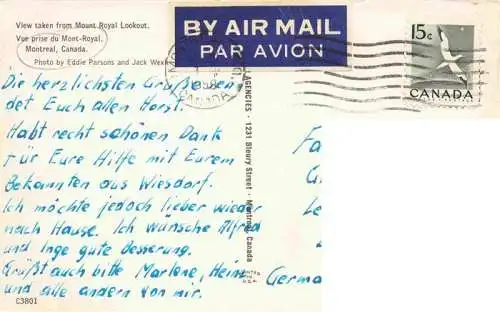 View taken from Mount Royal Lookout.
Vue prise du Mont-Royal,
Montreal, Canada.
Photo by Eddie Parsons and Jack
BY AIR MAIL
PAR AVION
15c
CANADA
Die herzlichsten Grüße sen
det Euch allen Horst.
Habt recht schönen Dank
für Eure Hilfe mit Eurem
Bekannten aus Wiesdorf.
Ich möchte jedoch lieber wieder
nach Hause. Ich wünsche Alfred
und Inge gute Besserung.
Grüßt auch bitte Marlene, Heinz
und alle andern von mir.
C3801
AGENCIES - 1231 Bleury Street - Montreal, Canada
CANADA
Fa
G
Le
Germa